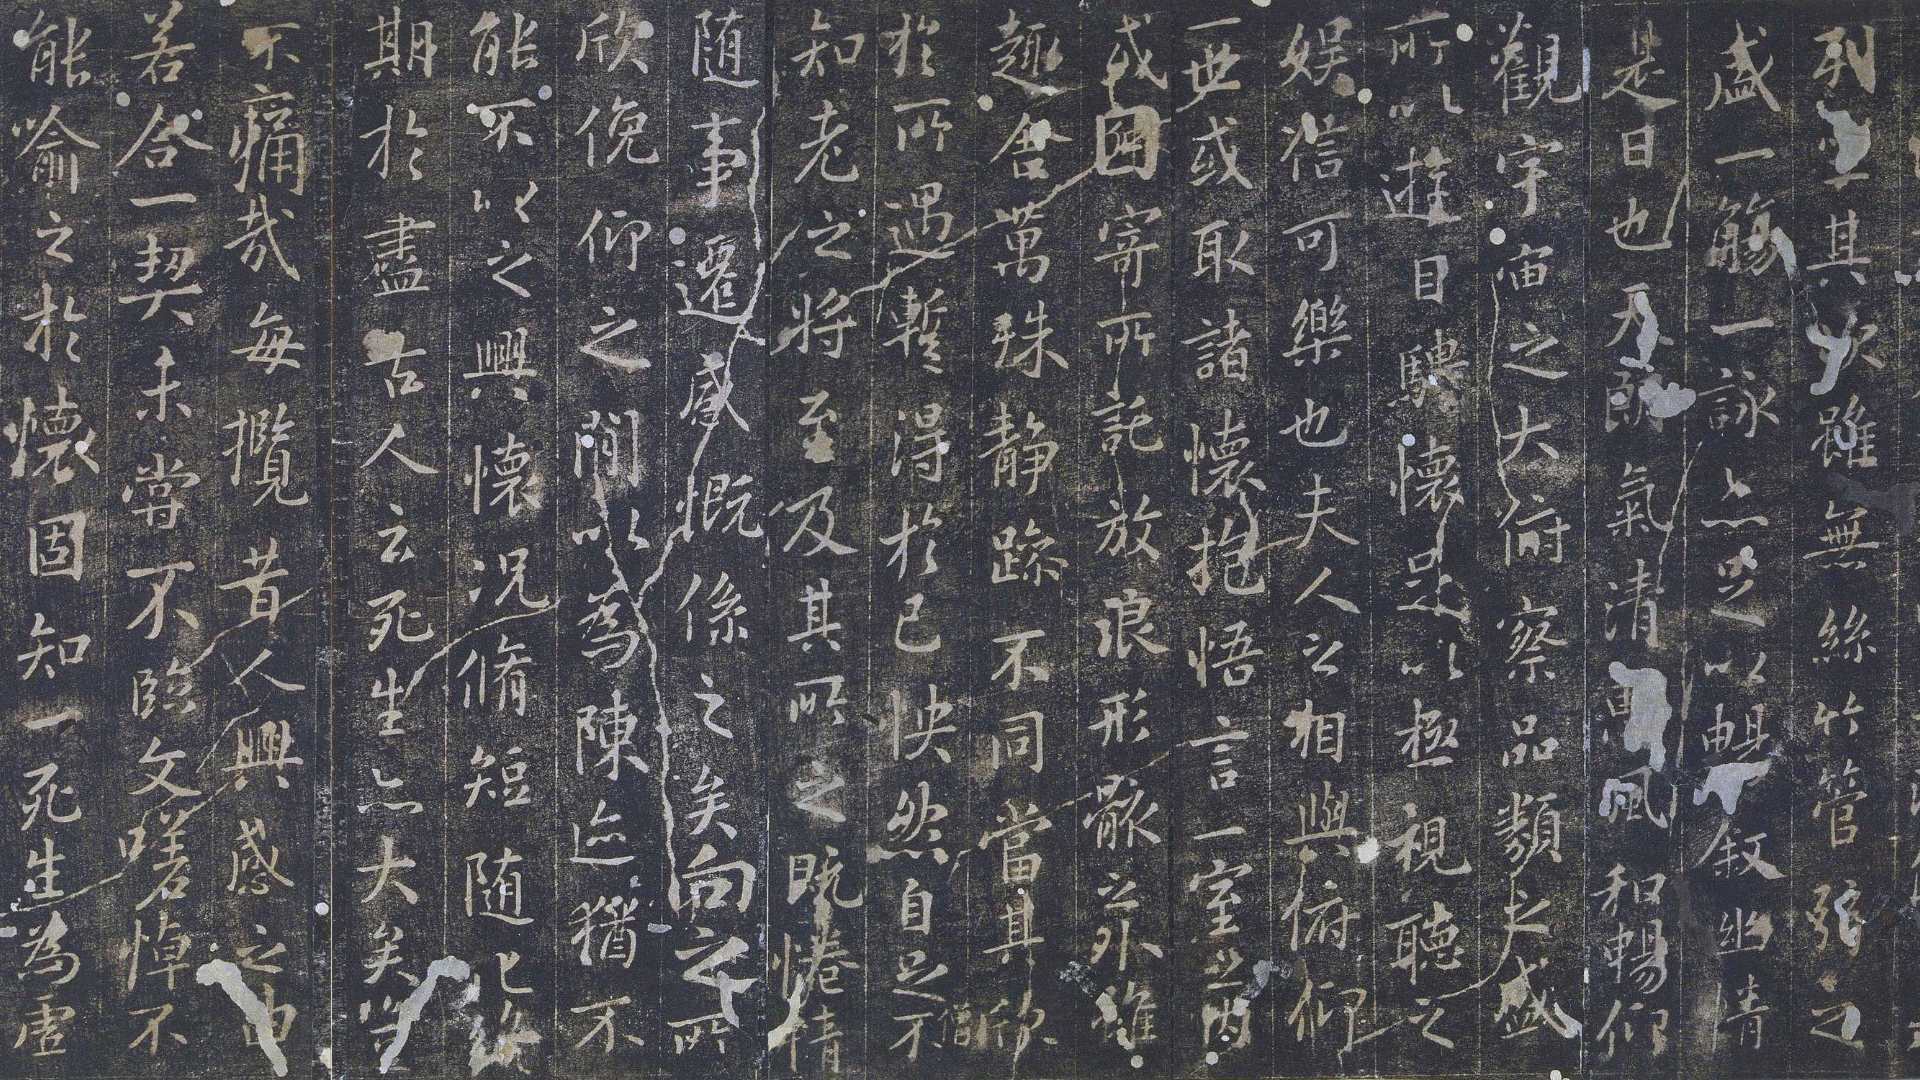 列坐其次雖無絲竹管弦之
盛一觴一詠亦足以暢敘幽情
是日也天朗氣清惠風和暢仰
觀宇宙之大俯察品類之盛
所以遊目騁懷足以極視聽之
娛信可樂也夫人之相與俯仰
一世或取諸懷抱悟言一室之內
或因寄所託放浪形骸之外雖
趣舍萬殊靜躁不同當其欣
於所遇暫得於己怏然自足不
知老之將至及其所之既惓情
随事遷感慨係之矣向之所
欣俛仰之閒以為陳迹猶不
能不以之興懷況脩短随化終
期於盡古人云死生亦大矣豈
不痛哉每攬昔人興感之由
若合一契未嘗不臨文嗟悼不
能喻之於懷固知一死生為虛